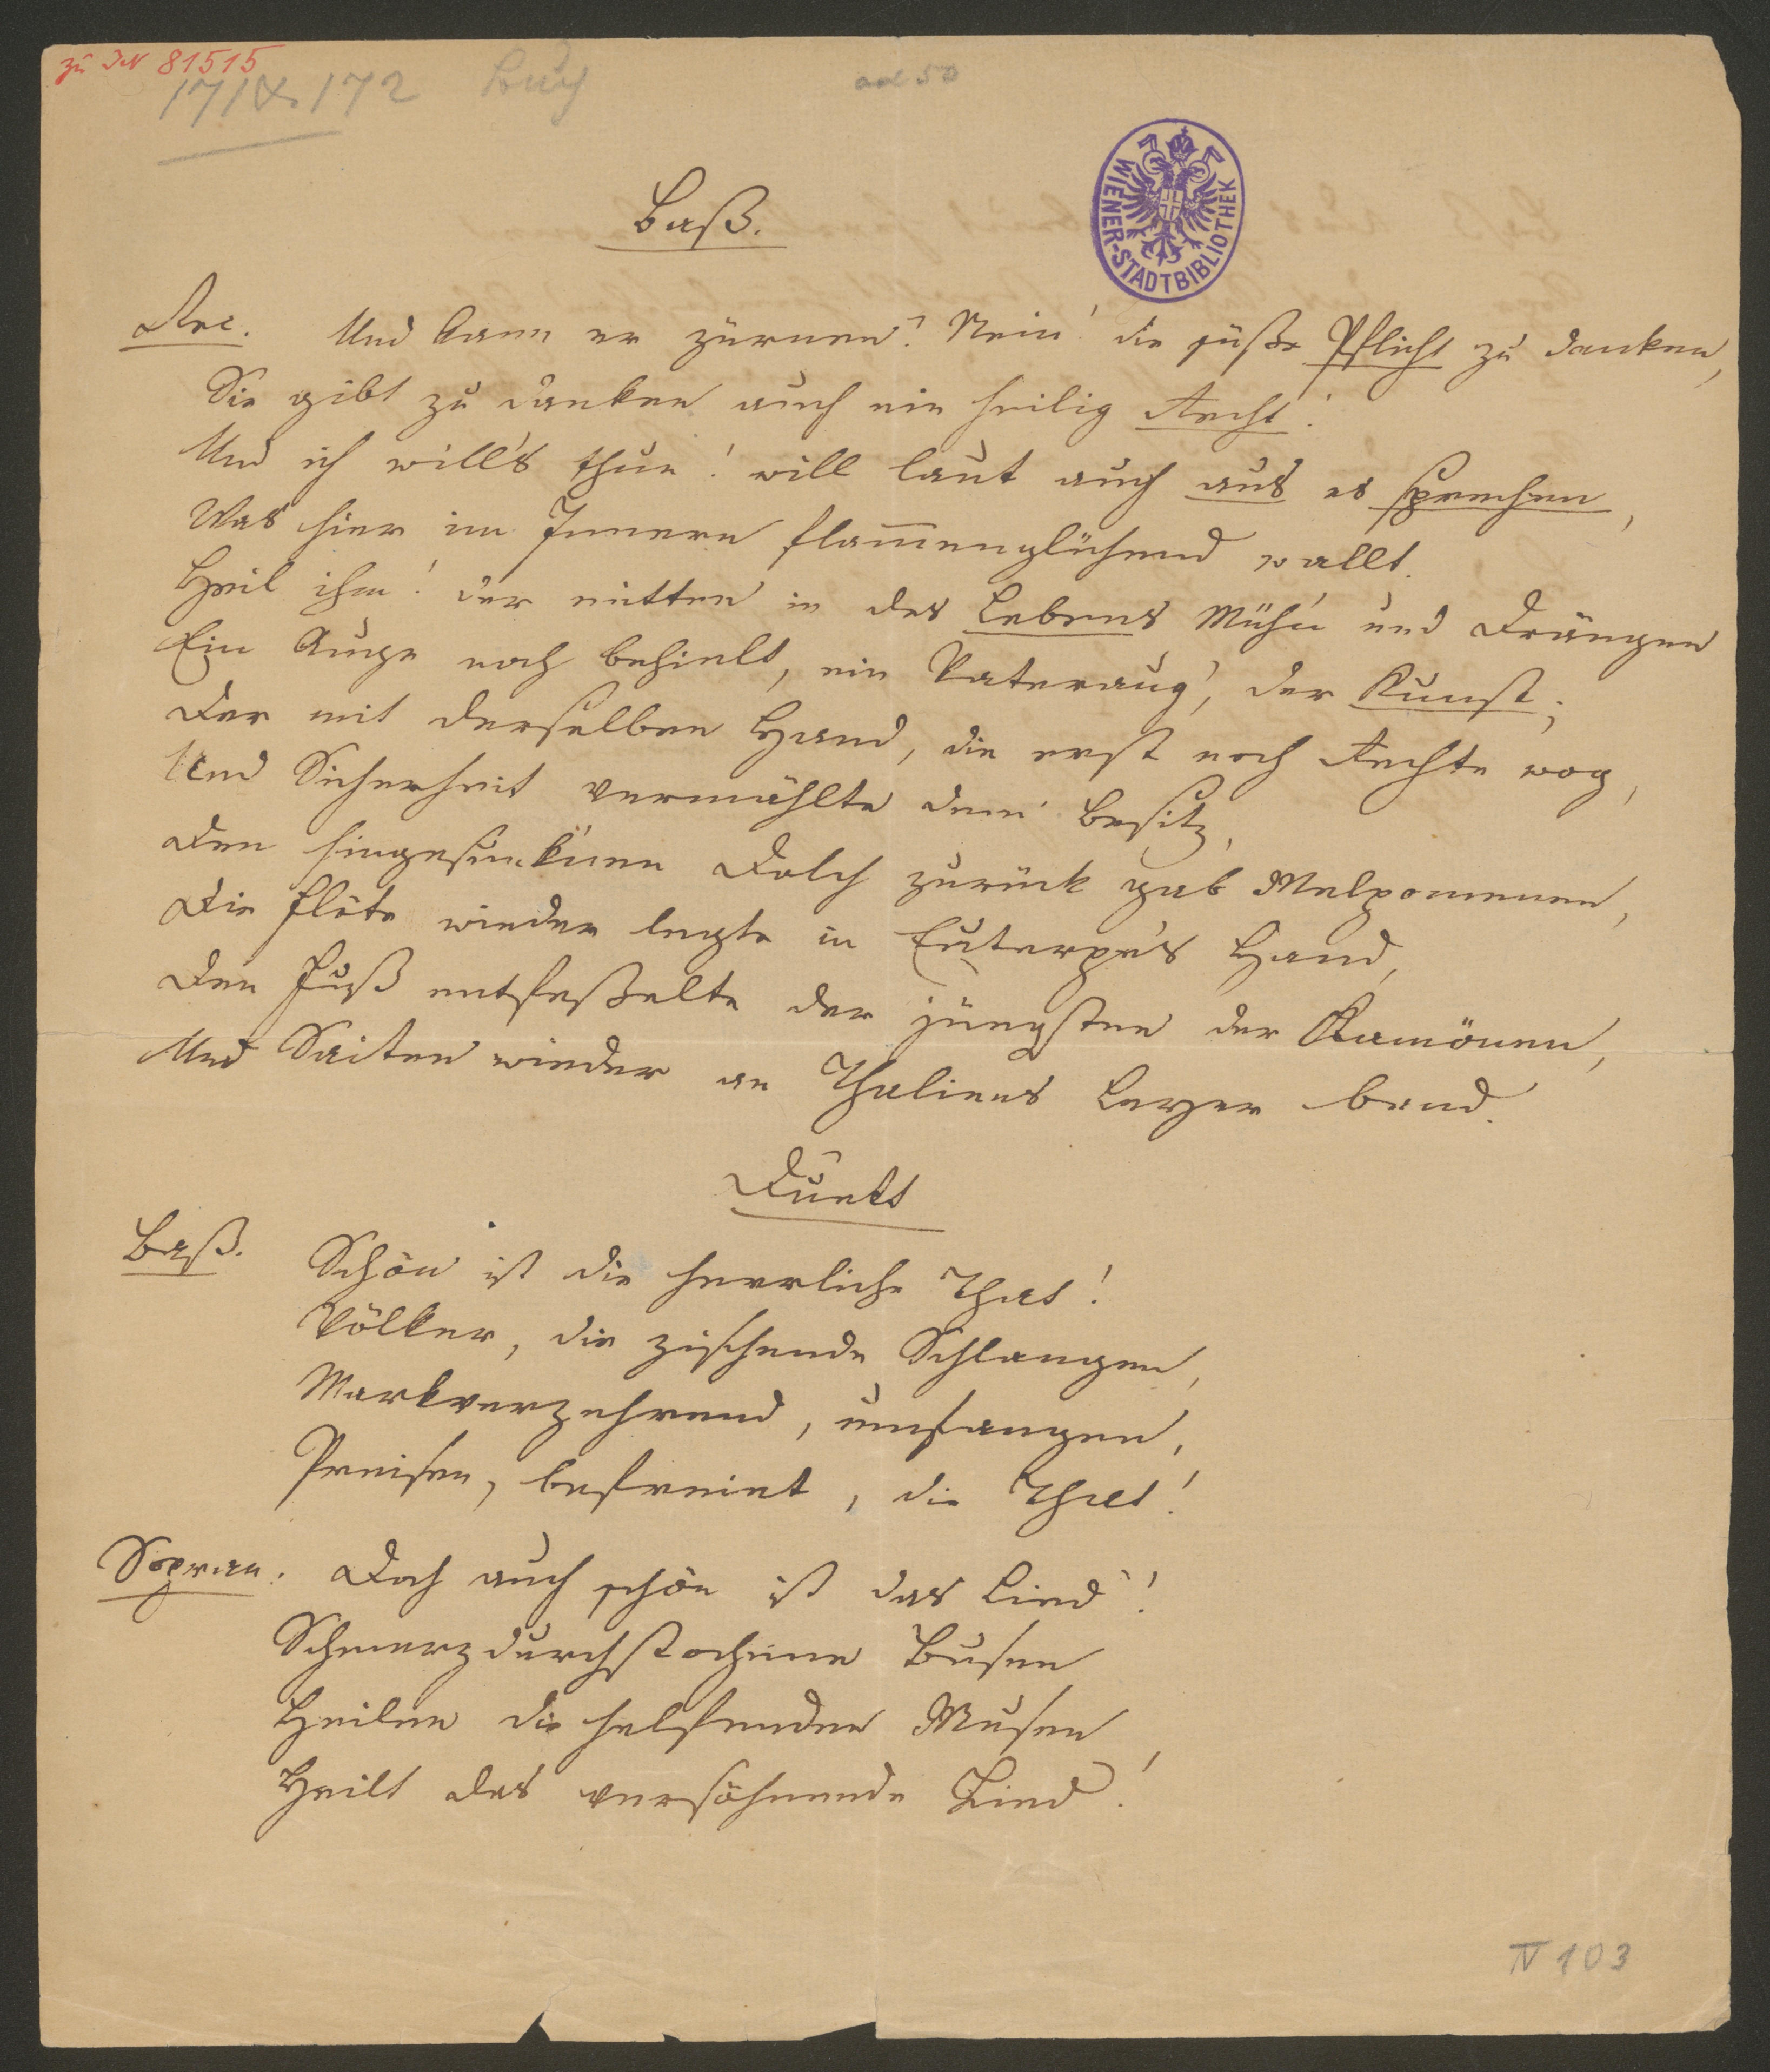 zu JN 81515
171 & 172
ad 50
WIENER-STADTBIBLIOTHEK
Baß.
Rec. Und kann er zürnen? Nein! die süße Pflicht zu danken,
Sie gibt zu danken auch ein heilig Recht!
Und ich will's thun! will laut auch aus es sprechen,
Was hier im Innern flammenglühend wallt.
Heil ihm! der mitten in des Lebens Müh'n und Drängen
Ein Auge noch behielt, ein Vateraug', der Kunst;
Der mit derselben Hand, die erst noch Rechte wog,
Und Sicherheit vermählte dem Besitz,
Den hingesunk'nen Dolch zurück gab Melpomenen,
Die Flöte wieder legte in Euterpe's Hand,
Den Fuß entfeßelte der jüngsten der Kamönen,
Und Saiten wieder an Thaliens Leyer band.
Duett
Baß. Schön ist die herrliche That!
Völker, die zischende Schlangen,
Markverzehrend, umfangen,
Preisen, befreiet, die That!
Sopran. Doch auch schön ist das Lied!
Schmerzdurchstochene Busen
Heilen die helfenden Musen,
Heilt das versöhnende Lied!
IV 103